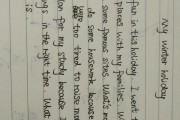 My winter holiday
fun in this holiday. I went t
places with my families. W
some famous sites. What's m
do some housework because
are too tired to raise
ion for my study because I
ngs in the right time. What
is